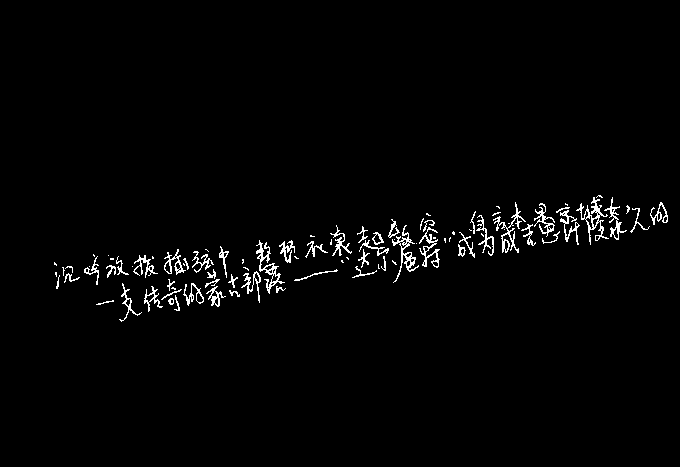 沉吟放拨插弦中,整顿衣裳起敛容。自言本是京城女,
一支传奇的蒙古部落——“达尔扈特”成为成吉思汗陵永久的